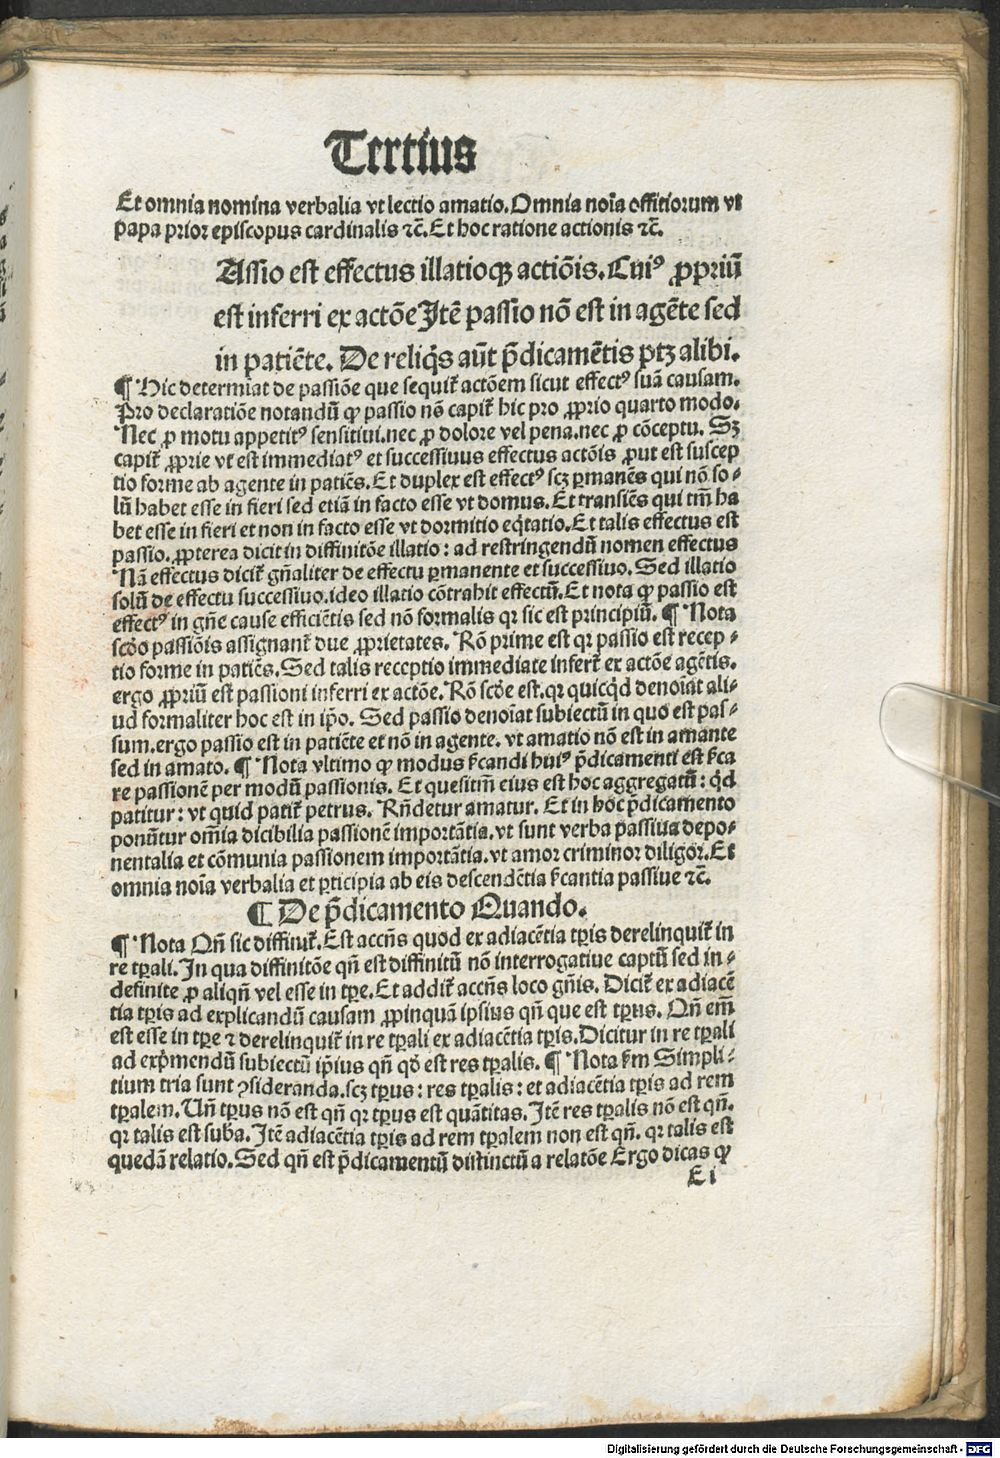 Tertius
Et omnia nomina verbalia vt lectio amatio. Omnia noīa offitiorum vt
papa prior episcopus cardinalis ⁊c̄. Et hoc ratione actionis ⁊c̄.
Assio est effectus illatioqꝫ actiōis. Cuiꝰ ꝓpriū
est inferri ex actōe Itē passio nō est in agēte sed
in patiēte. De reliq̄s aūt p̄dicamētis ptꝫ alibi.
¶ Hic determiat de passiōe que sequit᷑ actōem sicut effectꝰ suā causam.
Pro declaratiōe notandū ꝙ passio nō capit᷑ hic pro ꝓprio quarto modo.
Nec ꝓ motu appetitꝰ sensitiui. nec ꝓ dolore vel pena. nec ꝓ cōceptu. Sꝫ
capit᷑ ꝓprie vt est immediatꝰ et successiuus effectus actōis ꝓut est suscep
tio forme ab agente in patiēs. Et duplex est effectꝰ scꝫ ꝑmanēs qui nō so-
lū habet esse in fieri sed etiā in facto esse vt domus. Et transiēs qui tm̄ ha
bet esse in fieri et non in facto esse vt dormitio eq̄tatio. Et talis effectus est
passio. ꝓpterea dicit in diffinitōe illatio: ad restringendū nomen effectus
Nā effectus dicit᷑ gn̄aliter de effectu ꝑmanente et successiuo. Sed illatio
solū de effectu successiuo. ideo illatio cōtrahit effectū. Et nota ꝙ passio est
effectꝰ in gn̄e cause efficiētis sed nō formalis qr sic est principiū. ¶ Nota
scḋo passiōis assignant᷑ due ꝓprietates. Rō prime est qr passio est recep-
tio forme in patiēs. Sed talis receptio immediate infert᷑ ex actōe agētis.
ergo ꝓpriū est passioni inferri ex actōe. Rō scḋe est. qr quicq̄d denoīat ali-
ud formaliter hoc est in ip̄o. Sed passio denoīat subiectū in quo est pas-
sum. ergo passio est in patiēte et nō in agente. vt amatio nō est in amante
sed in amato. ¶ Nota vltimo ꝙ modus ſ̄candi huiꝰ p̄dicamenti est ſ̄ca
re passionē per modū passionis. Et quesitm̄ eius est hoc aggregatū: q̄d
patitur: vt quid patit᷑ petrus. Rn̄detur amatur. Et in hoc p̄dicamento
ponūtur om̄ia dicibilia passionē importātia. vt sunt verba passiua depo-
nentalia et cōmunia passionem importātia. vt amor criminor diligor. Et
omnia noīa verbalia et ꝑticipia ab eis descendētia ſ̄cantia passiue ⁊c̄.
¶ De p̄dicamento Quando.
¶ Nota Qn̄ sic diffinit᷑. Est accn̄s quod ex adiacētia tꝑis derelinquit᷑ in
re tꝑali. In qua diffinitōe qn̄ est diffinitū nō interrogatiue captū sed in-
definite ꝓ aliqn̄ vel esse in tꝑe. Et addit᷑ accn̄s loco gn̄is. Dicit᷑ ex adiacē
tia tꝑis ad explicandū causam ꝓpinquā ipsius qn̄ que est tꝑus. Qn̄ em̄
est esse in tꝑe ⁊ derelinquit᷑ in re tꝑali ex adiacētia tꝑis. Dicitur in re tꝑali
ad exp̄mendū subiectū ip̄ius qn̄ qḋ est res tꝑalis. ¶ Nota ſm̄ Simpli-
tium tria sunt ꝯsideranda. scꝫ tꝑus: res tꝑalis: et adiacētia tꝑis ad rem
tꝑalem. Un̄ tꝑus nō est qn̄ qr tꝑus est quātitas. Itē res tꝑalis nō est qn̄.
qr talis est suba. Itē adiacētia tꝑis ad rem tꝑalem non est qn̄. qr talis est
quedā relatio. Sed qn̄ est p̄dicamentū distinctū a relatōe Ergo dicas ꝙ
E i
Digitalisierung gefördert durch die Deutsche Forschungsgemeinschaft - DFG